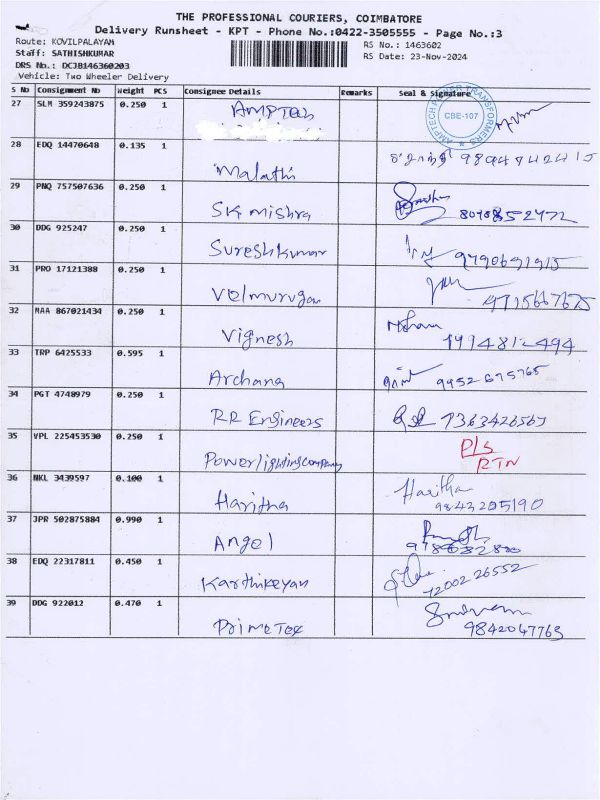 THE PROFESSIONAL COURIERS, COIMBATORE
Delivery Runsheet - KPT - Phone No.:0422-3505555 - Page No.:3
Route: KOVILPALAYAM
Staff: SATHISHKUMAR
DRS No.: DCJB146360203
Vehicle: Two Wheeler Delivery
RS No.: 1463602
RS Date: 23-Nov-2024
S No Consignment No Weight PCS Consignee Details Remarks Seal & Signature
27 SLM 359243875 0.250 1 AMPTech
AMPTECH POWER TRANSFORMERS
CBE-107
28 EDQ 14470648 0.135 1 Malathi
29 PNQ 757507636 0.250 1 SK mishra
30 DDG 925247 0.250 1 Sureshkumar 9790691915
31 PRO 17121388 0.250 1 Velmurugan
32 MAA 867021434 0.250 1 Vignesh
33 TRP 6425533 0.595 1 Archana 9952675765
34 PGT 4748979 0.250 1 RR Engineers
35 VPL 225453530 0.250 1 Powerlightingcompany Pls
RTN
36 NKL 3439597 0.100 1 Haritha Haritha
9843205190
37 JPR 502875884 0.990 1 Angel
38 EDQ 22317811 0.450 1 Karthikeyan 7200226552
39 DDG 922012 0.470 1 PrimeTex 9842047763